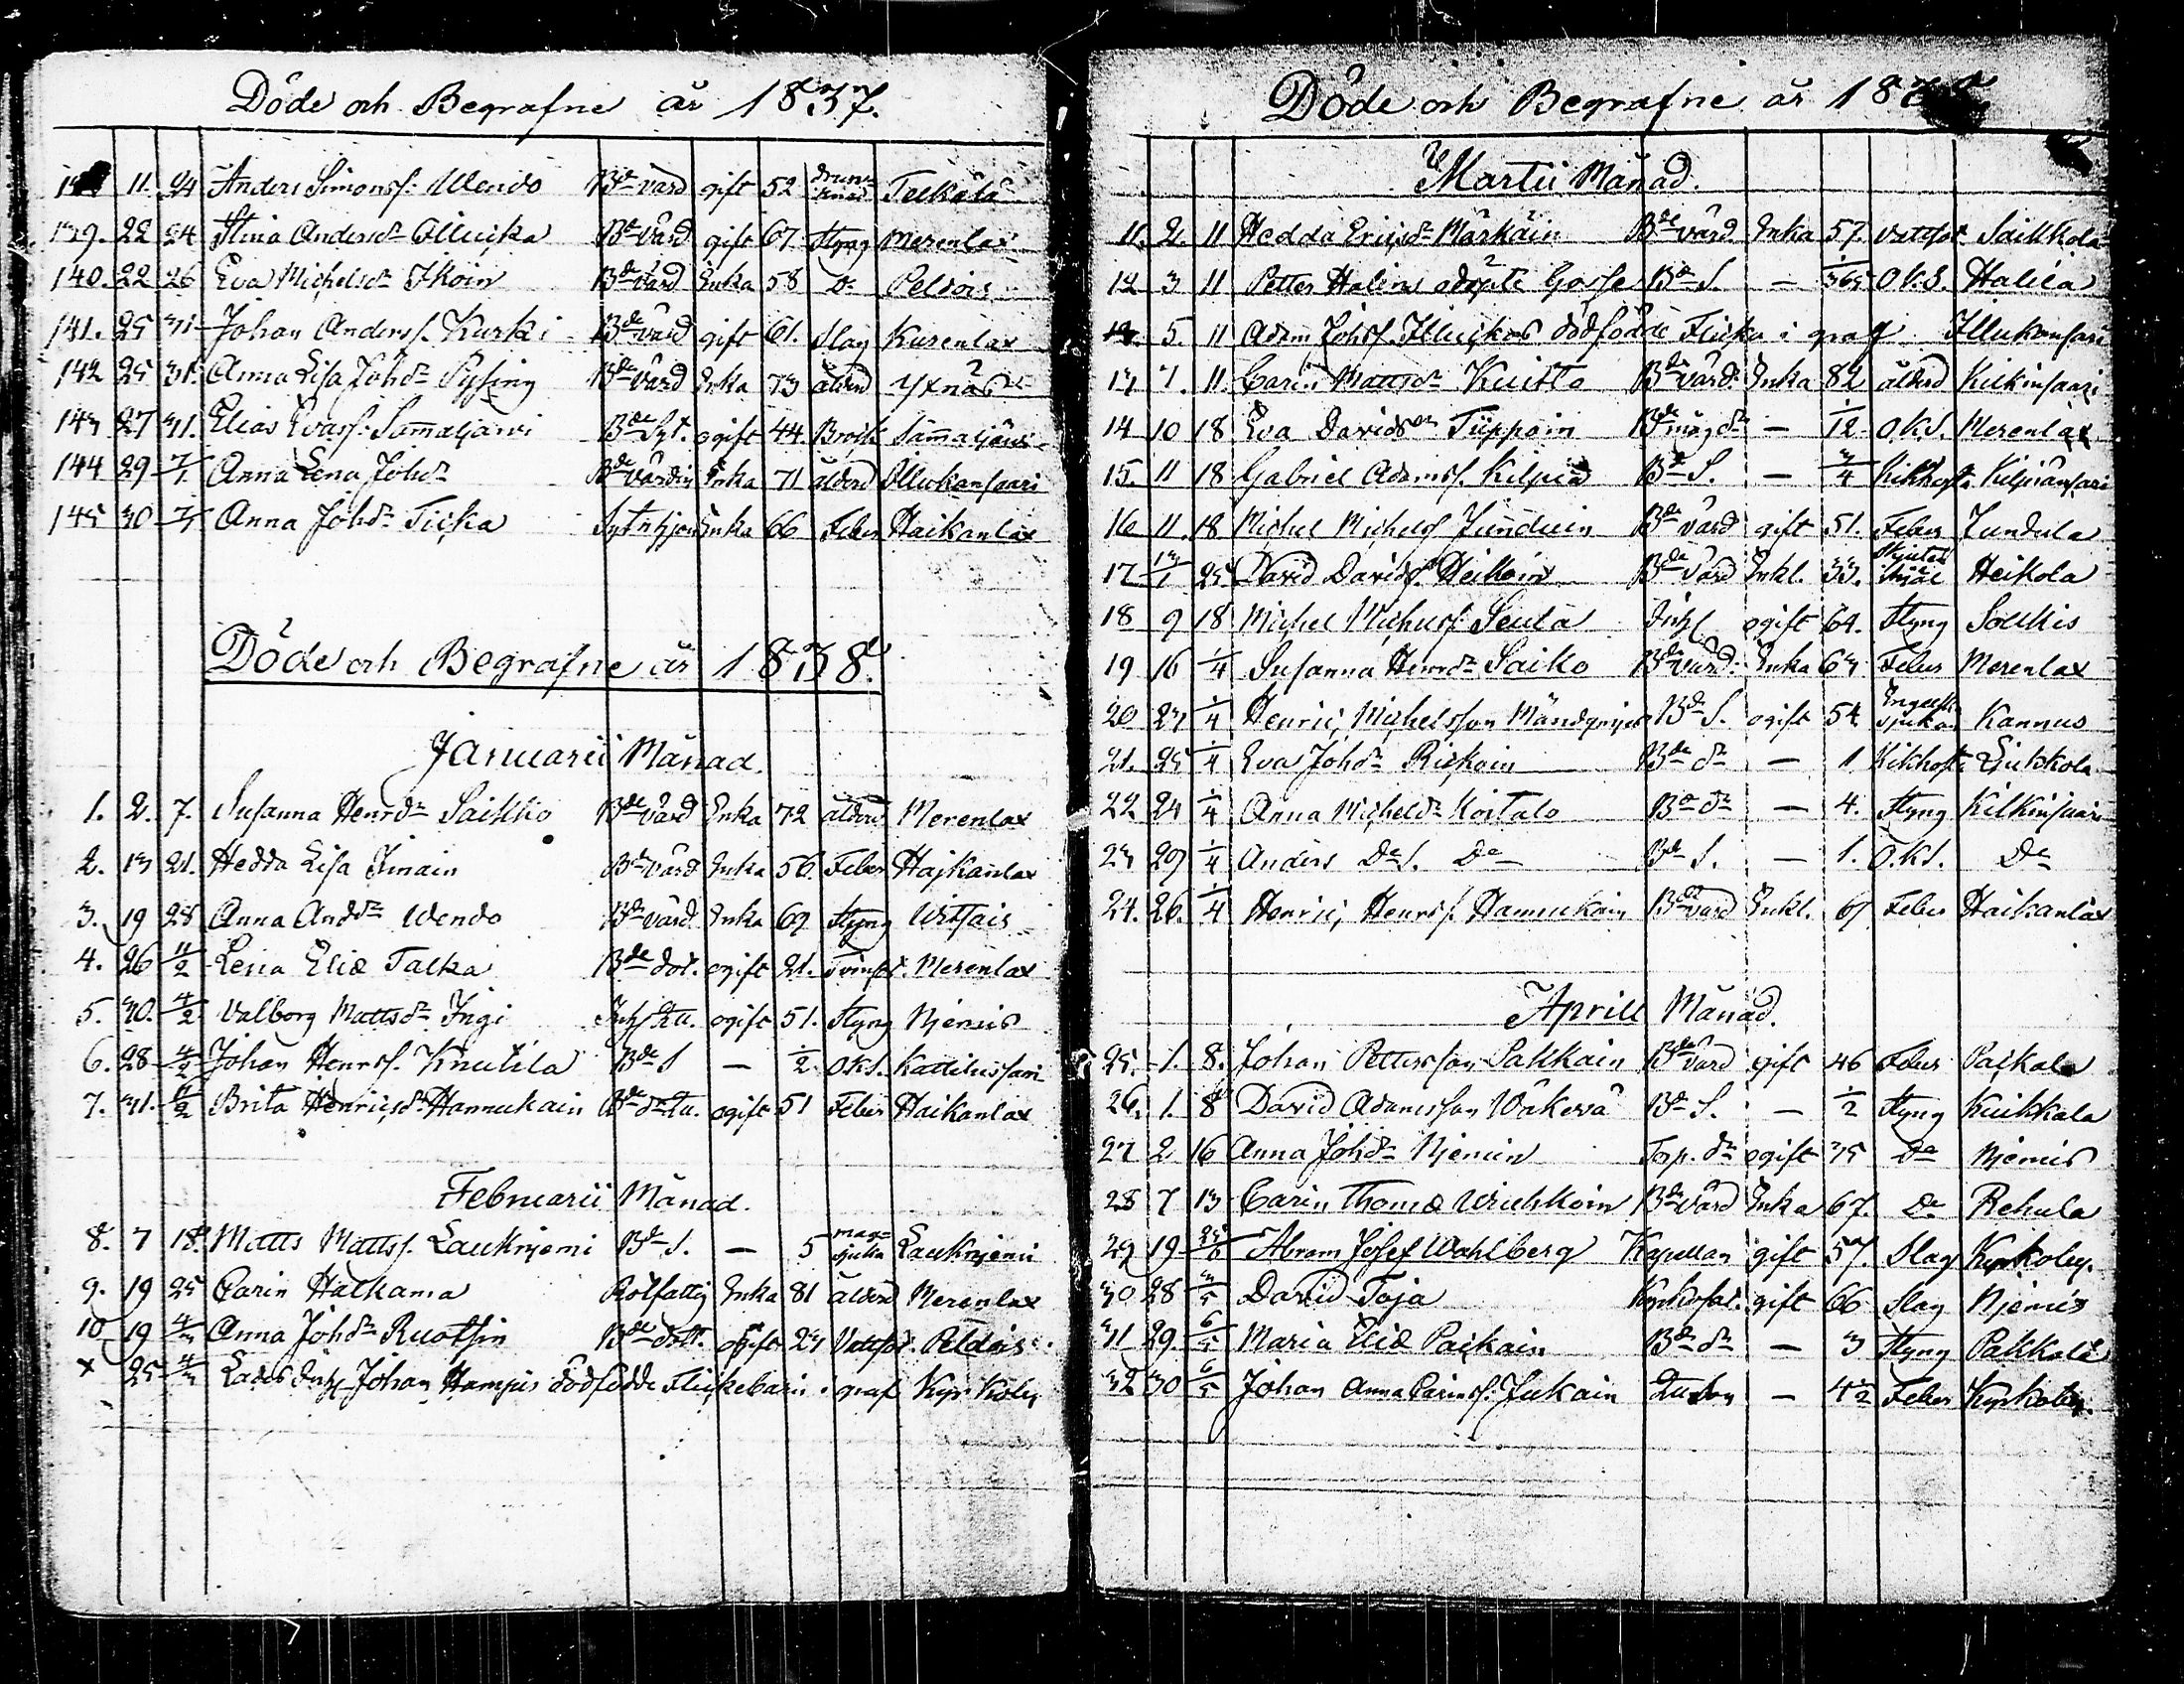 Döde och Begrafne år 1837.
11. 24 Anders Simonss: Wendo Bde värd gift 52 drunknad Telkälä
139. 22 24 Stina Andersdr Ollucka Bde värd gift 67 Styng Merenlax
140. 22 26 Eva Michelsdr Ikoin Bde värd Enka 58 Do Peldois
141. 25 31 Johan Anderss. Kurki Bde värd gift 61. Slag Kurenlax
142 25 31. Anna Lisa Johdr Sysing Bde värd Enka 73 ålderd Yxnäs
143 27 31. Elias Evass: Sam̄aljärvi Bde Syt. ogift 44. Bröst Sam̄aljärvi
144 29 7/1 Anna Lena Johdr Bde värdin Enka 71 ålderd Ollukansaari
145 30 7/1 Anna Johdr Ticka Sytnhjon Enka 66 Feber Haikanlax
Döde och Begrafne år 1838.
Januarii Månad.
1. 2. 7. Susanna Henrdr Saikko Bde värd Enka 72 ålderd Merenlax
2. 13 21. Hedda Lisa Imain Bde värd Enka 56. Feber Hajkanlax
3. 19 28 Anna Anddr Wendo Bde värd Enka 69 Styng Witsais
4. 26 11/2 Lena Eliæ Talka Bde dot. ogift 21. Tvinsot. Merenlax
5. 30. 4/2 Valborg Mattsdr Ingi Inhs Qu. ogift 51. Styng Njemis
6. 28 4/2 Johan Henrss. Knutila Bde S — 1/2. O.K.S. Kattilussari
7. 31. 6/2 Brita Henricsdr Hannukain Bde dr Qu. ogift 51 Feber Haikanlax
Februarii Månad.
8. 7 18. Matts Mattss. Lauknjemi Bde S. — 5 magsjuka Lauknjemi
9. 19 25 Carin Halkama Rotfattig Enka 81 ålderd Merenlax
10 19 4/3 Anna Johdr Ruotsin Bde dott. ogift 23 Vattsot. Peldois
x 25 4/3 Johan Hampus dödfödde Flickebarn i graf Kyrkoby
Döde och Begrafne år
Martii Månad.
11. 2. 11 Hedda Ericsdr Märkäin Bde värd Enka 57. Vattsot Saikkola
12 3 11 Petter Halins ddöpte Gosse Bde S. — 1/365 O.K.S. Halila
5. 11 Adam Johss. Illuckas dödfödde Flicka i graf Illukansari
13 7. 11. Carin Mattsdr Kuitto Bde värd. Enka 82 ålderd Kilkinsaari
14 10 18 Eva Davidsdr Tüppoin Bde mågdr — 1/12 O.K.S. Merenlax
15. 11 18 Gabriel Adamss. Kilpiä Bde S. — 3/4 Kikhosta Kilpiänsari
16 11. 18. Michel Michelss Junduin Bde värd gift 51. Feber Jundula
17 13/1 25 David Davidss. Heikoin Bde värd Enkl. 33. Skjutit ihjäl Heikola
18 9 18 Michel Michelss. Seula Inhs ogift 64. Styng Solkis
19 16 1/4 Susanna Henrdr Saiko Bde värd. Enka 63 Feber Merenlax
20 23 1/4 Henric Michelsson Mändynjemi Bde S. ogift 54 Engelska sjukan Kannus
21. 25 1/4 Eva Johdr Riskoin Bde dr — 1 Kikhosta Liukkola
22. 24 1/4 Anna Micheldr Koitalo Bde dr — 4. Styng Kilkinsaari
23 29 1/4 Anders Do S. Do Bde S. — 1. O.K.S. Do
24. 26. 1/4 Henric Henrss. Hannukain Bde värd Enkl. 61 Feber Haikanlax
Aprill Månad.
25. 1. 8. Johan Pettersson Pakkain Bde värd gift 46 Feber Paikala
26. 1. 8 David Adamsson Wäkevä Bde S. — 1/2 Styng Kuikkala
27 2 16 Anna Johdr Njemin Torp. dr ogift 35 Do Njemis
28 7 13 Carin Thomæ Wiuhkoin Bde värd Enka 67. Do Rehula
29 19 Abram Josef Wahlberg Kapellan gift 57. Slag Kyrkoby.
30 28 3/5 David Toja gift 66 Slag Njemis
31 29. 6/5 Maria Eliæ Paikain Bde dr — 3 Styng Pakkala
32 30 6/5 Johan Anna Carinss: Jukain Qu Son — 4 1/2 Feber Kyrkoby.